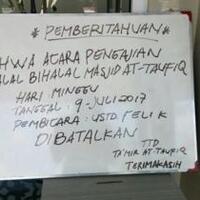 * PEMBERITAHUAN *
HWA ACARA PENGAJIAN
ALAL BIHALAL MASJID AT-TAUFIQ
HARI MINGGU
TANGGAL : 9-JULI 2017
PEMBICARA : USTD FELIK
DIBATALKAN
TTD
TA'MIR AT-TAUFIQ
TERIMAKASIH